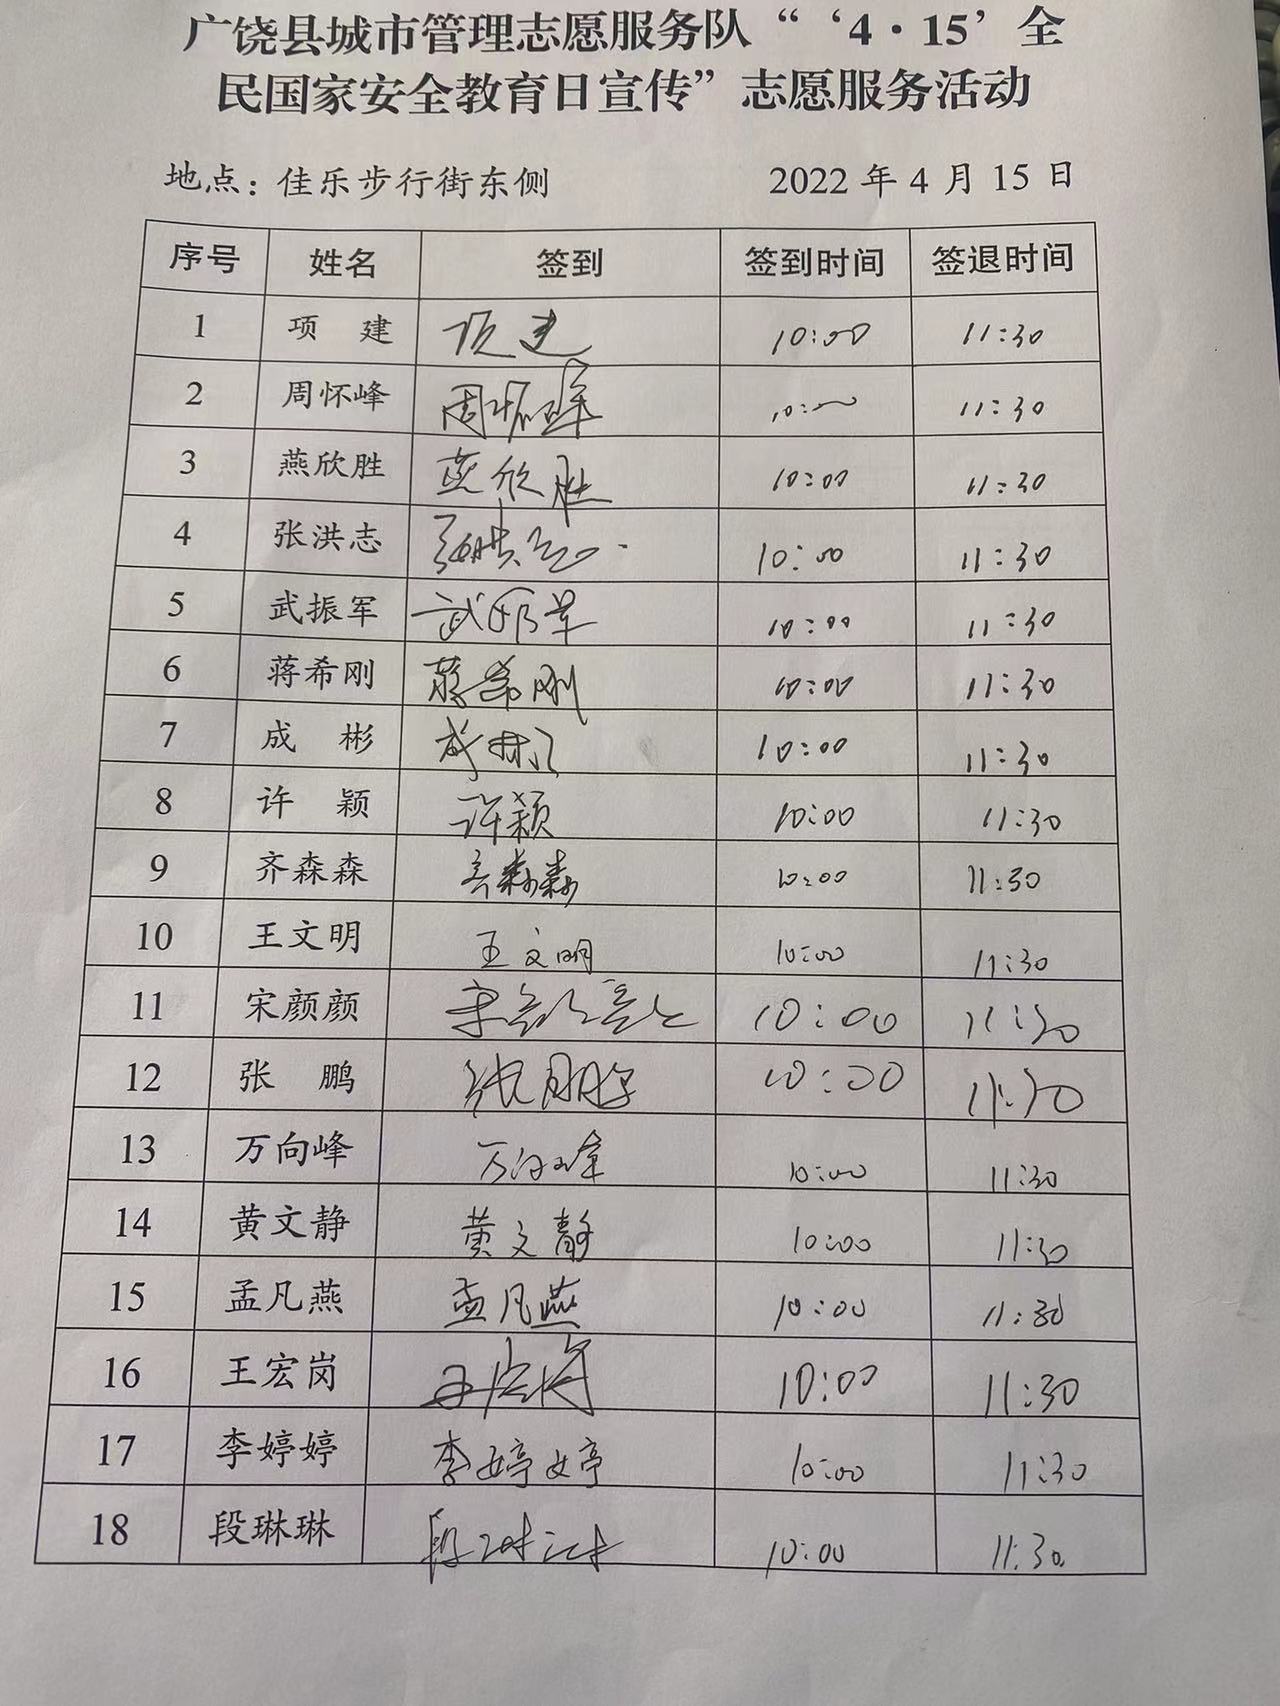 广饶县城市管理志愿服务队“‘4·15’全
民国家安全教育日宣传”志愿服务活动
地点：佳乐步行街东侧 2022年4月15日
序号 姓名 签到 签到时间 签退时间
1 项 建 项建 10:00 11:30
2 周怀峰 周怀峰 10:00 11:30
3 燕欣胜 燕欣胜 10:00 11:30
4 张洪志 张洪志 10:00 11:30
5 武振军 武振军 10:00 11:30
6 蒋希刚 蒋希刚 10:00 11:30
7 成 彬 成彬 10:00 11:30
8 许 颖 许颖 10:00 11:30
9 齐森森 齐森森 10:00 11:30
10 王文明 王文明 10:00 11:30
11 宋颜颜 宋颜颜 10:00 11:30
12 张 鹏 张鹏 10:00 11:30
13 万向峰 万向峰 10:00 11:30
14 黄文静 黄文静 10:00 11:30
15 孟凡燕 孟凡燕 10:00 11:30
16 王宏岗 王宏岗 10:00 11:30
17 李婷婷 李婷婷 10:00 11:30
18 段琳琳 段琳琳 10:00 11:30